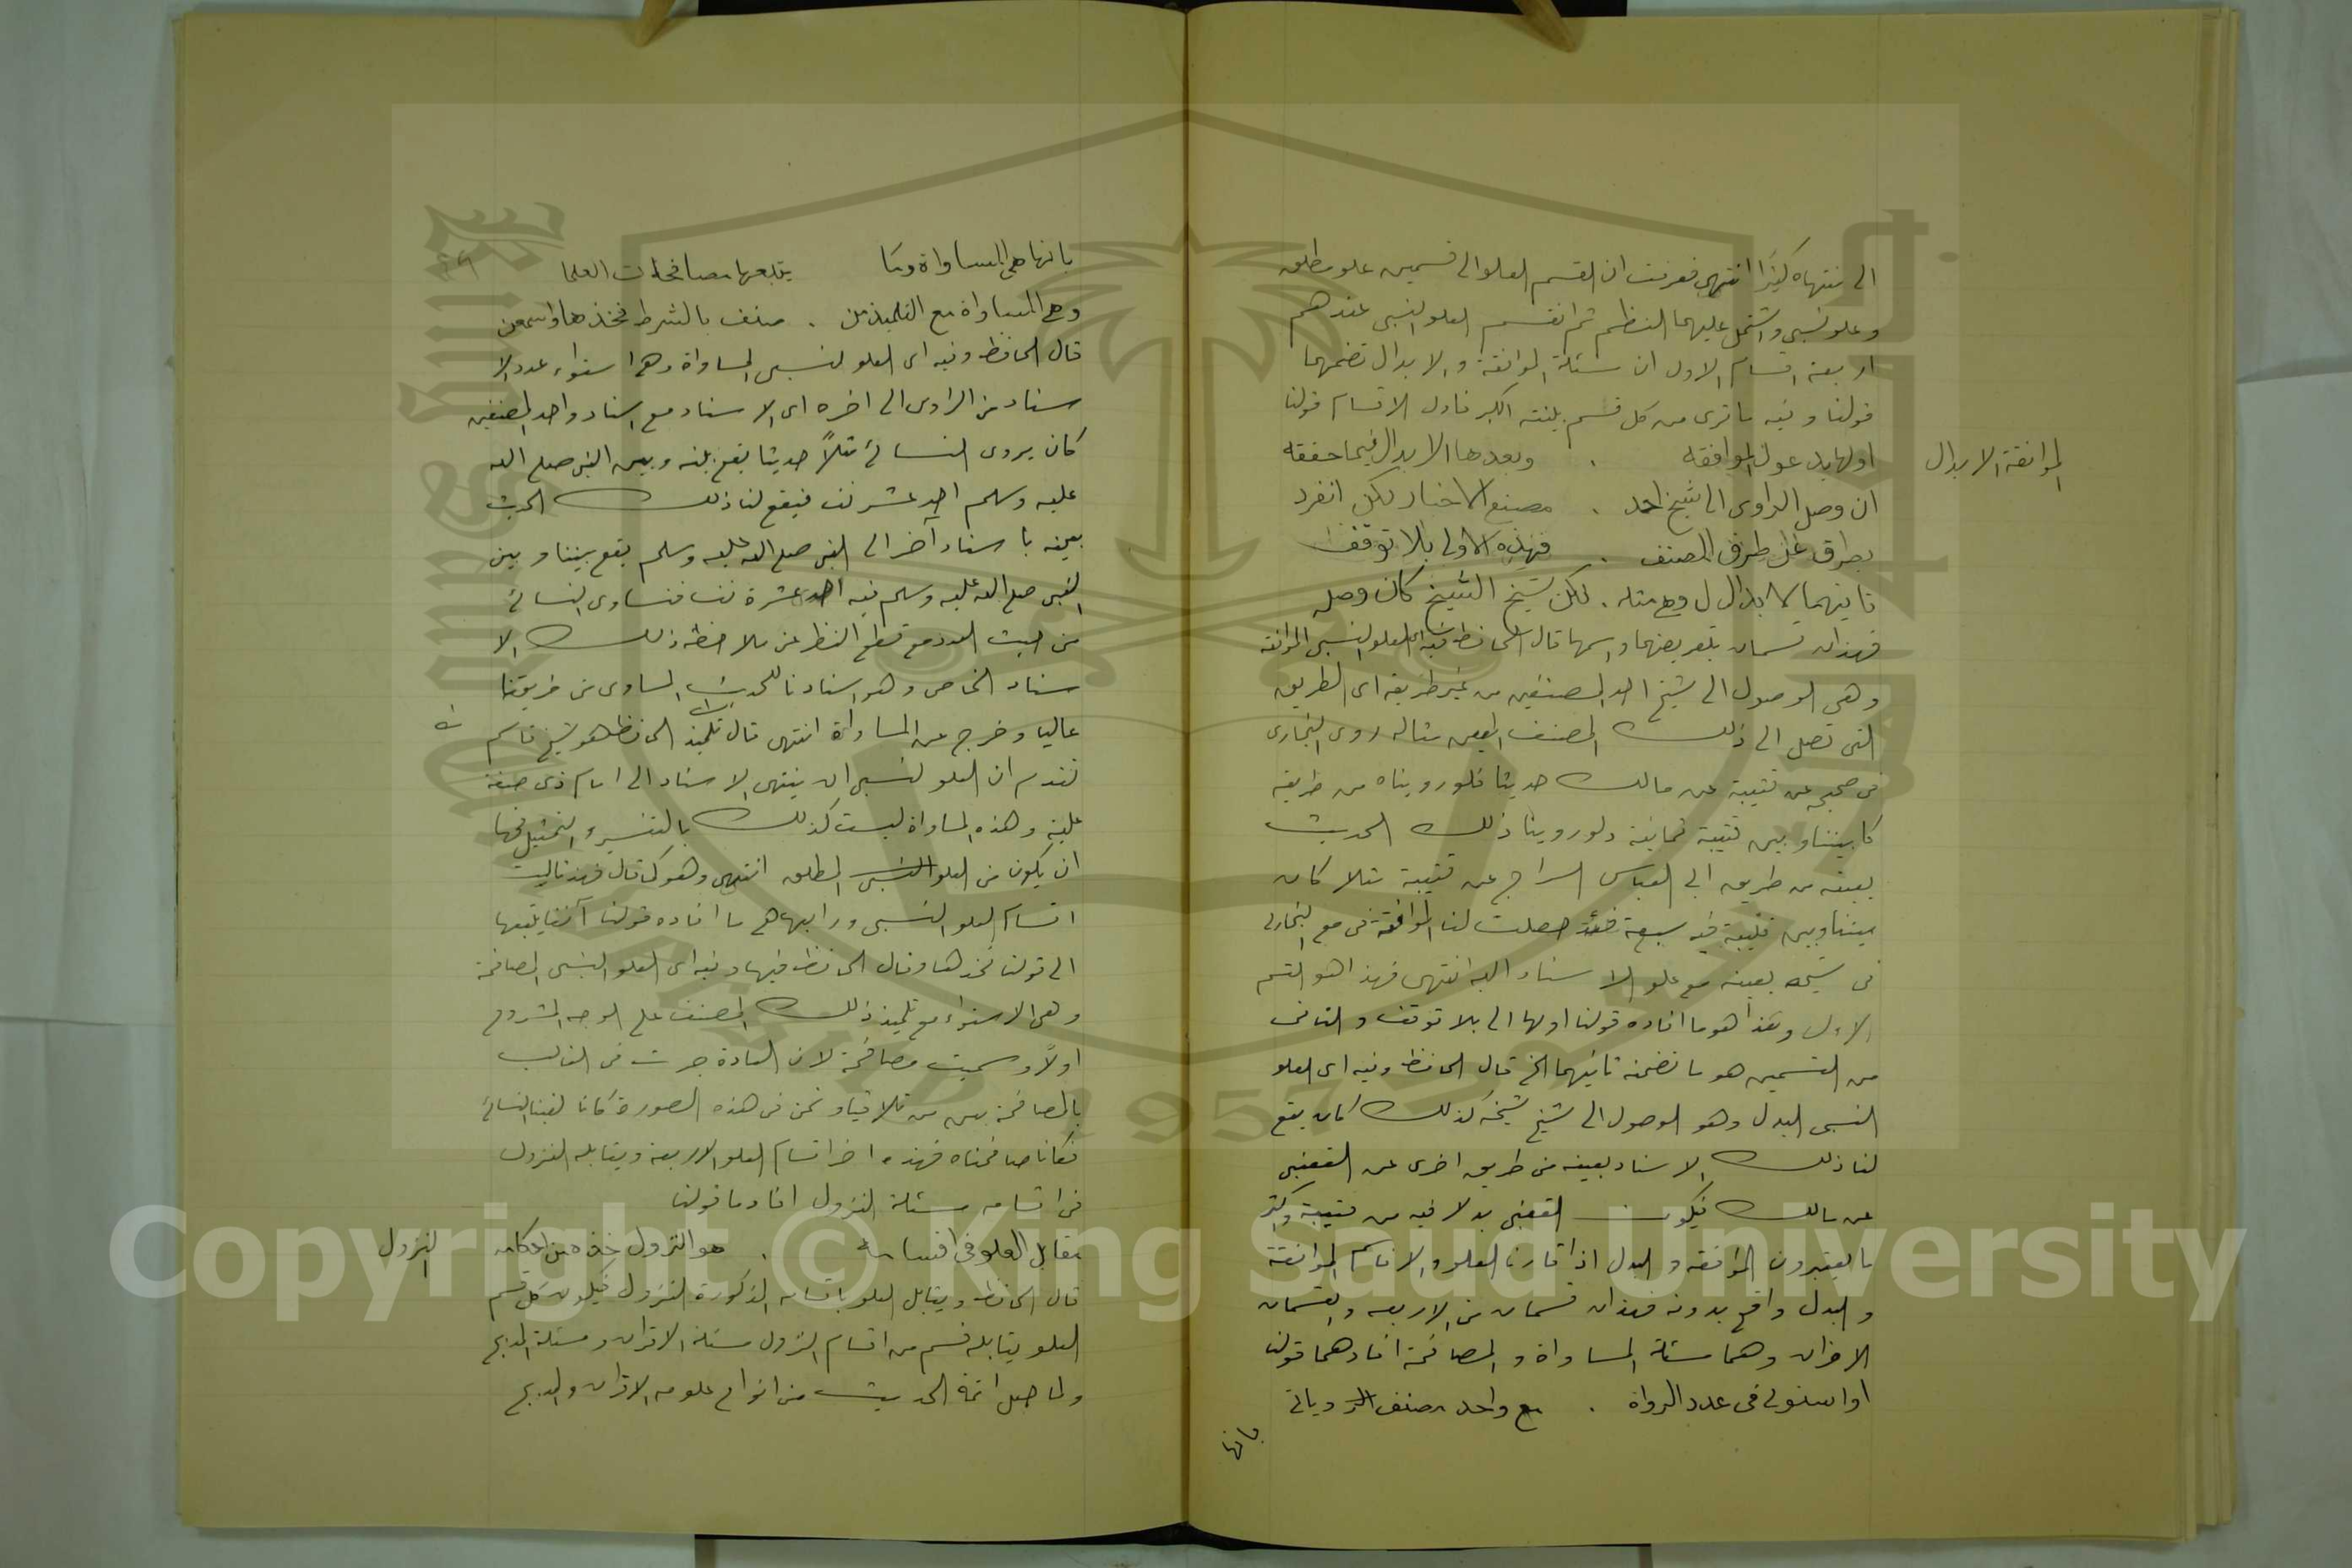 الى منتهاه كثيرًا انتهى فعرفت ان القسم العلو الى قسمين علو مطلق
وعلو نسبي واشتمل عليهما النظم ثم انقسم العلو النسبي عندهم
اربعة اقسام الاول ان مسئلة الموافقة والابدال تضمنهما
قولنا وفيه ما ترى من كل قسم فاول الاقسام قولنا
الموافقة الابدال
اولها يدعون الموافقه . وبعدها الابدال فيما حققه
ان وصل الراوى الى شيخ احد . مصنع الاخبار لكن انفرد
بطرق عن طرق المصنف . فهذه الاولى بلا توقف
ثانيهما الابدال وهي مثله . لكن شيخ الشيخ كان وصله
فهذان قسمان بتعريفهما واسمها قال الحافظ وفيه اى العلو النسبي الموافقة
وهي الوصول الى شيخ احد المصنفين من غير طريقه اى الطريق
التى تصل الى ذلك المصنف المعين مثاله روى البخارى
فى صحيحه عن قتيبة عن مالك حديثا فلو رويناه من طريقه
كان بيننا وبين قتيبة ثمانية ولو روينا ذلك الحديث
بعينه من طريق ابي العباس السراج عن قتيبة مثلا كان
بيننا وبين قتيبة فيه سبعة فقد حصلت لنا الموافقة مع البخارى
فى شيخه بعينه مع علو الاسناد اليه انتهى فهذا هو القسم
الاول وهذا هو ما افاده قولنا اولها الى بلا توقف والثانى
من القسمين هو ما تضمنه ثانيهما الخ قال الحافظ وفيه اى العلو
النسبي البدل وهو الوصول الى شيخ شيخه كذلك كان يقع
لنا ذلك الاسناد بعينه من طريق اخرى عن القعنبي
عن مالك فيكون القعنبي بدلا فيه من قتيبة واكثر
ما يعتبرون الموافقه والبدل اذا قارنا العلو والا فاسم الموافقة
والبدل واقع بدونه فهذان قسمان من الاربعه والقسمان
الاخران وهما مسئلة المساواة والمصافحة افادهما قولنا
او استوى فى عدد الرواة . مع واحد مصنف
بانها
بانها هي المساواة يتبعها مصافحات العلما
وهي المساواة مع التلميذ من . صنف بالشرط فخذها واسمعن
قال الحافظ وفيه اى العلو النسبي المساواة وهي استواء عدد الا
سناد من الراوى الى اخره اى الاسناد مع اسناد واحد المصنفين
كان يروى النسائ مثلاً حديثا يقع بينه وبين النبي صلى الله
عليه وسلم احد عشر نفسا فيقع لنا ذلك الحديث
بعينه باسناد آخر الى النبي صلى الله عليه وسلم يقع بيننا وبين
النبي صلى الله عليه وسلم فيه احد عشرة نفسا فنساوى النسائ
من حيث العدد مع قطع النظر عن ملاحظة ذلك الا
سناد الخاص وهو اسنادنا للحديث المساوى من طريقنا
عاليا وخرج عن المساواة انتهى قال تلميذ الحافظ هو الشيخ قاسم
تقدم ان العلو النسبي ان ينتهى الاسناد الى امام ذى صفة
علية وهذه المساواة ليست كذلك بالتفسير والتمثيل فحقها
ان يكون من العلو المطلق انتهى وهو كما قال فهذ ثالث
اقسام العلو النسبي ورابعها هي ما افاده قولنا آنفا يتبعها
الى قولنا فخذها وقال الحافظ فيها وفيه اى العلو النسبي المصافحة
وهي الاستواء مع تلميذ ذلك المصنف على الوجه المشروح
اولًا وسميت مصافحة لان العادة جرت فى الغالب
بالمصافحة بين من تلاقيا ونحن فى هذه الصورة كانا لقينا النسائ
فكانا صافحناه فهذه اخر اقسام العلو الاربعة ويقابله النزول
فى اقسامه مسئلة النزول افادها قولنا
النزول
مقابل العلو فى اقسامه . هو النزول خذه من احكامه
قال الحافظ ويقابل العلو باقسامه المذكورة النزول فيكون كل قسم
العلو يقابله قسم من اقسام النزول مسئلة الاقران ومسئلة المدبج
ولما جعل ائمة الحديث من انواع علومه الاقران والمدبج
Copyright © King Saud University
1957